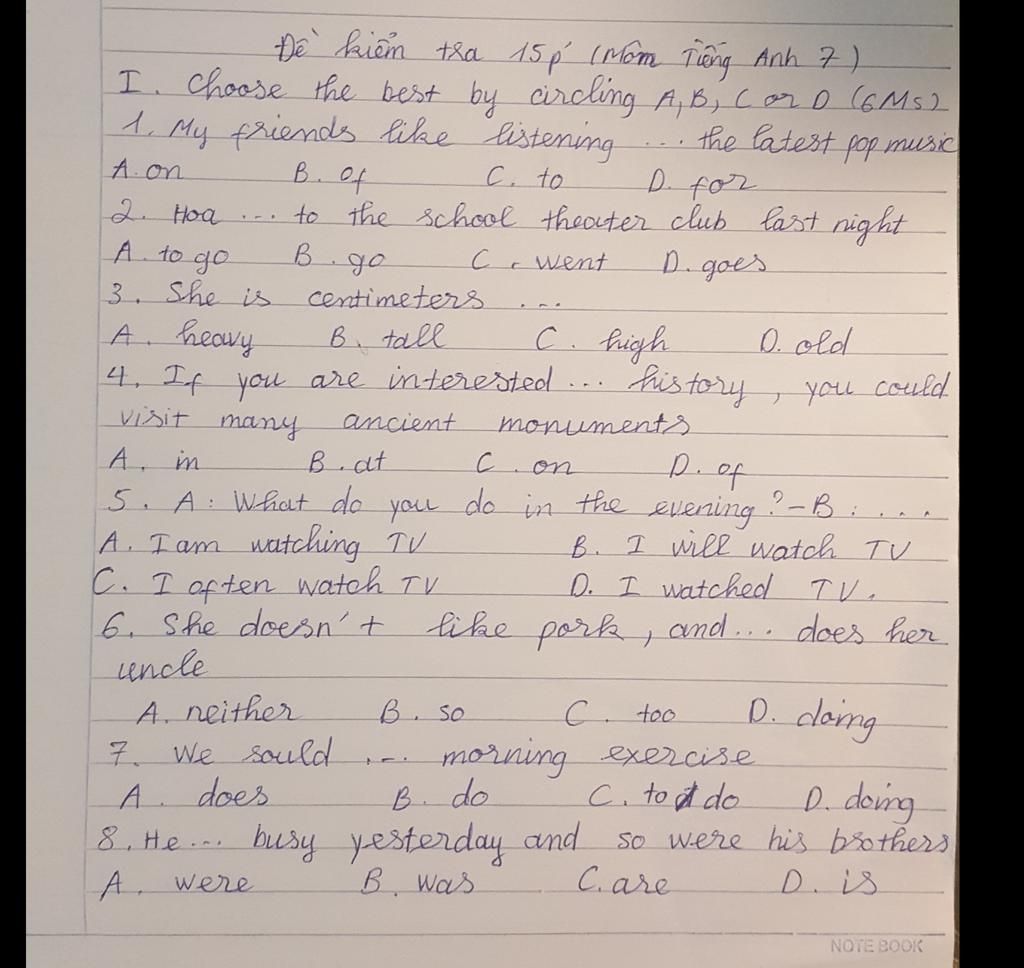 Đề kiểm tra 15p' (Môm Tiếng Anh 7)
I. Choose the best by circling A, B, C or D (6Ms)
1. My friends like listening ... the latest pop music
A. on B. of C. to D. for
2. Hoa ... to the school theater club last night
A. to go B. go C. went D. goes
3. She is centimeters ...
A. heavy B. tall C. high D. old
4. If you are interested ... history, you could
visit many ancient monuments
A. in B. at C. on D. of
5. A: What do you do in the evening? - B: ....
A. I am watching TV B. I will watch TV
C. I often watch TV D. I watched TV.
6. She doesn't like pork, and ... does her
uncle
A. neither B. so C. too D. doing
7. We sould ... morning exercise
A. does B. do C. to do D. doing
8. He ... busy yesterday and so were his brothers
A. were B. was C. are D. is
NOTE BOOK